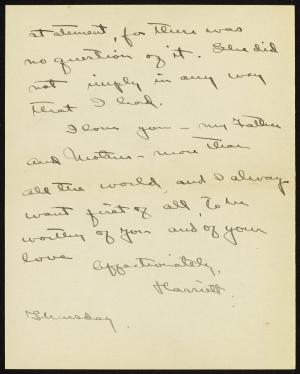 statement, for there was
no question of it. She did
not imply in any way
that I had.
I love you - my Father
and Mother - more than
all the world, and I always
want first of all, to be
worthy of you and of your
love
Affectionately,
Harriett.
Thursday.